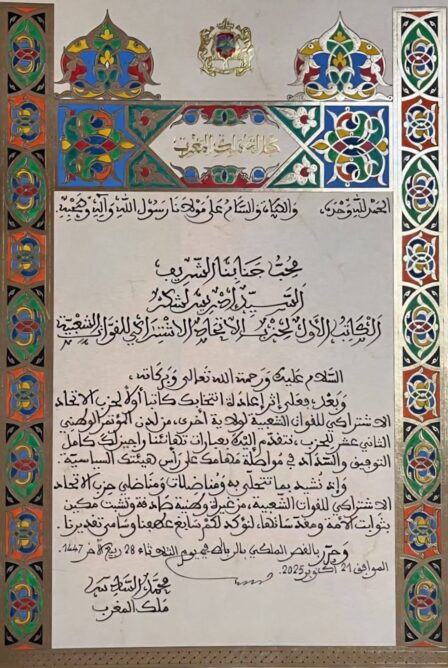 جلالة ملك المغرب
الحمد لله وحده، والصلاة والسلام على مولانا رسول الله وآله وصحبه
محب جنابنا الشريف
السيد إدريس لشكر
الكاتب الأول لحزب الاتحاد الاشتراكي للقوات الشعبية
السلام عليك ورحمة الله تعالى وبركاته،
وبعد، فعلى إثر إعادة انتخابك كاتبا أولا لحزب الاتحاد
الاشتراكي للقوات الشعبية لولاية أخرى، من لدن المؤتمر الوطني
الثاني عشر للحزب، نتقدم إليك بعبارات تهانئنا وأحر متمنياتنا لك بكامل
التوفيق والسداد في مواصلة مهامك على رأس هيئتك السياسية.
وإذ نشيد بما تتحلى به ومناضلات ومناضلي حزب الاتحاد
الاشتراكي للقوات الشعبية، من غيرة وطنية صادقة وتشبث مكين
بثوابت الأمة ومقدساتها، لنؤكد لكم سابغ عطفنا وسامي تقديرنا.
وحرر بالقصر الملكي بالرباط في يوم الثلاثاء 28 ربيع الآخر 1447.
الموافق 21 أكتوبر 2025.
محمد السادس
ملك المغرب